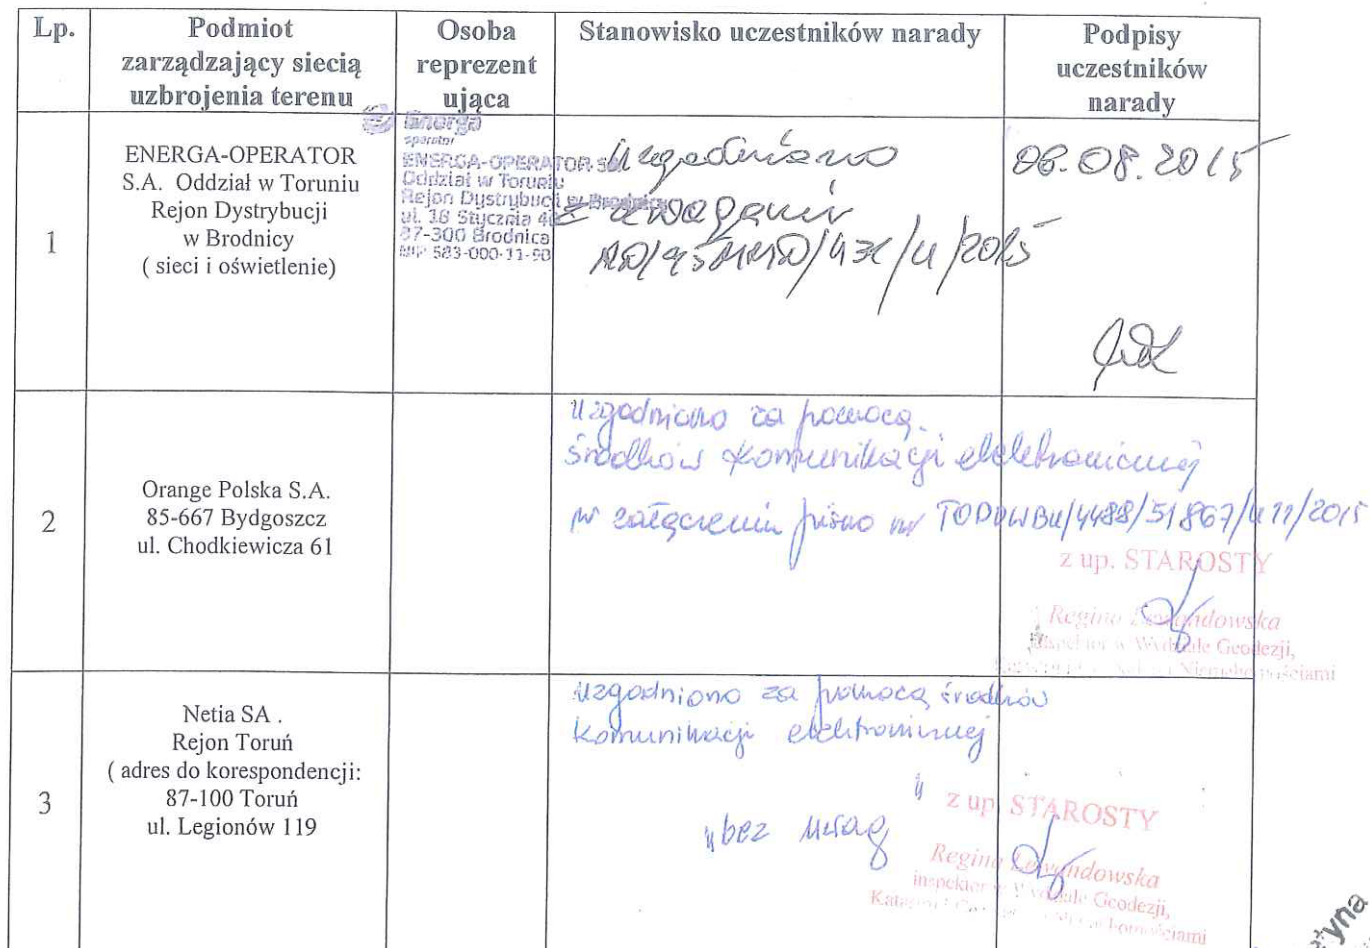 Lp.
Podmiot
zarządzający siecią
uzbrojenia terenu
Osoba
reprezent
ująca
Stanowisko uczestników narady
Podpisy
uczestników
narady
1
ENERGA-OPERATOR
S.A. Oddział w Toruniu
Rejon Dystrybucji
w Brodnicy
( sieci i oświetlenie)
Energa
operator
ENERGA-OPERATOR SA
Oddział w Toruniu
Rejon Dystrybucji w Brodnicy
ul. 18 Stycznia
87-300 Brodnica
NIP 583-000-11-90
Uzgodniono
z uwagami
/2015
06.08.2015
2
Orange Polska S.A.
85-667 Bydgoszcz
ul. Chodkiewicza 61
Uzgodniono za pomocą
środków komunikacji elektronicznej
w załączeniu pismo nr TODDWBU/4488/51867/U11/2015
z up. STAROSTY
Regina Lewandowska
inspektor w Wydziale Geodezji,
3
Netia SA .
Rejon Toruń
( adres do korespondencji:
87-100 Toruń
ul. Legionów 119
Uzgodniono za pomocą środków
komunikacji elektronicznej
"bez uwag"
z up. STAROSTY
Regina Lewandowska
inspektor w Wydziale Geodezji,